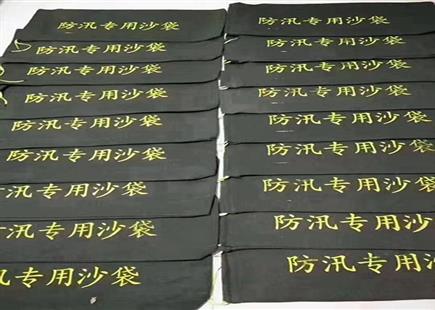 防汛专用沙袋
防汛专用沙袋
防汛专用沙袋
防汛专用沙袋
防汛专用沙袋
防汛专用沙袋
防汛专用沙袋
防汛专用沙袋
防汛专用沙袋
防汛专用沙袋
防汛专用沙袋
防汛专用沙袋
防汛专用沙袋
防汛专用沙袋
汛专用沙袋
防汛专用沙袋
汛专用沙袋
防汛专用沙